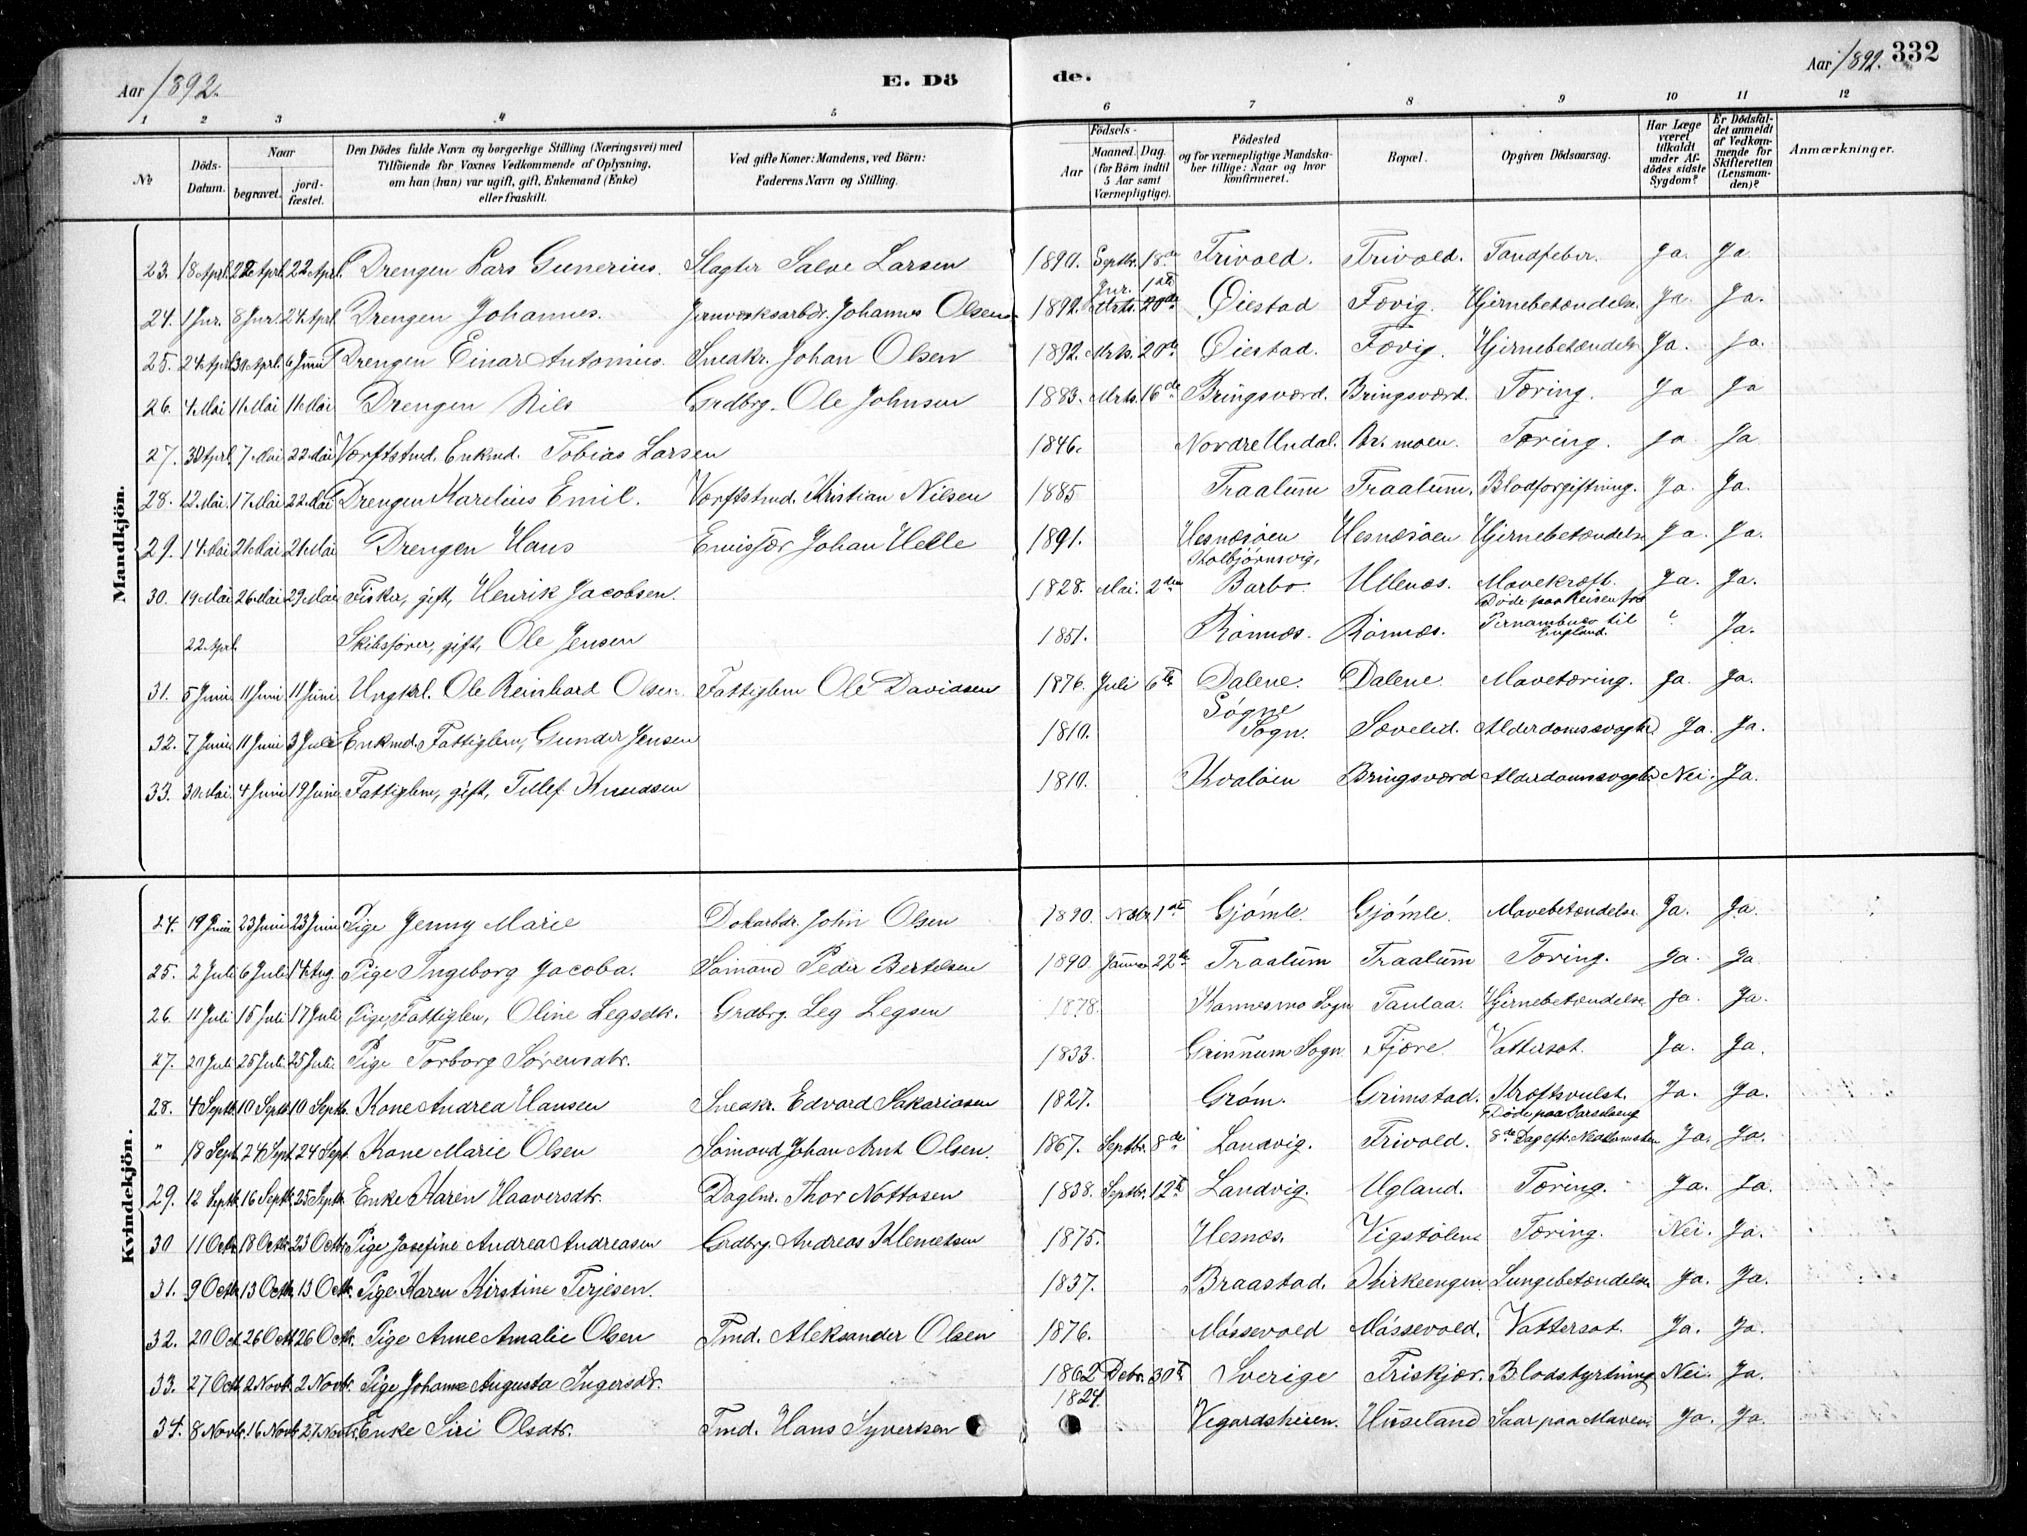 Aar 1892. E. Dö de. Aar 1892. 332
1 2 3 4 5 6 7 8 9 10 11 12
No Döds-Datum. Naar begravet. jord-fæstet. Den Dödes fulde Navn og borgerlige Stilling (Næringsvei) med Tilföiende for Voxnes Vedkommende af Oplysning, om han (hun) var ugift, gift, Enkemand (Enke) eller fraskilt. Ved gifte Koner: Mandens, ved Börn: Faderens Navn og Stilling. Födsels- Aar Maaned. Dag. (for Börn indtil 5 Aar samt Værnepligtige). Födested og for værnepligtige Mandska-ber tillige: Naar og hvor konfirmeret. Bopæl. Opgiven Dödsaarsag. Har Læge været tilkaldt under Af-dödes sidste Sygdom? Er Dödsfal-det anmeldt af Vedkom-mende for Skifteretten (Lensman-den)? Anmærkninger.
Mandkjön.
23. 18 Aprl. 22 Aprl. 22 Aprl. Drengen Lars Gunerius. Slagter Salve Larsen 1890. Septbr. 18de Trivold. Trivold. Tandfeber. Ja. Ja
24. 1 Jnr. 8 Jnr. 24 Aprl. Drengen Johannes. Jernværksarbdr. Johannes Olsen 1892. Jnr. 1ste Øiestad Fævig. Hjernebetændelse. Ja. Ja.
25. 24 Aprl. 30 Aprl. 6 Juni Drengen Einar Antonius. Snedkr. Johan Olsen 1892. Mrts. 20de Øiestad. Fævig. Hjernebetændelse Ja. Ja.
26. 4 Mai 11 Mai 11 Mai Drengen Nils Grdbrg. Ole Johnsen 1883. Mrts. 16de Bringsværd. Bringsværd. Tæring. Ja Ja
27. 30 Aprl. 7 Mai 22 Mai Værftstmd. Enkmd. Tobias Larsen 1846. Nordre Undal. Br. moen. Tæring. Ja. Ja
28. 12 Mai. 17 Mai 22 Mai Drengen Karelius Emil. Værftstmd. Kristian Nilsen 1885 Traalum Traalum. Blodforgiftning. Ja. Ja.
29. 14 Mai 21 Mai 21 Mai Drengen Hans Emisjær Johan Helle 1891. Hesnæsøen Hesnæsøen Hjernebetændelse Ja. Ja.
30. 19 Mai 26 Mai 29 Mai Fisker, gift, Henrik Jacobsen. 1828. Mai. 2den Kolbjørnsvig, Barbo. Ullenæs. Mavekræft. Ja. Ja.
22 Aprl. Skibsfører, gift, Ole Jensen 1851. Rønnæs. Rønnæs. Døde paa Reisen fra Pernambuco til England. Ja.
31. 5 Juni 11 Juni 11 Juni Ungkrl. Ole Reinhard Olsen. Fattiglem Ole Davidsen 1876. Juli 6te Dalene. Dalene. Mavetæring. Ja. Ja.
32. 7 Juni 11 Juni 3 Juli Enkmd. Fattiglem, Gunder Jensen 1810. Søgne Sogn. Sævelid. Ja. Ja.
33. 30 Mai. 4 Juni 19 Juni Fattiglem, gift, Tellef Knudsen 1810. Kvaløen Bringsværd Nei. Ja.
Kvindekjön.
24. 19 Juni 23 Juni 23 Juni Pige Jenny Marie Dokarbdr. John Olsen 1890. 1ste Gjømle. Gjømle. Mavebetændelse Ja. Ja.
25. 2 Juli 6 Juli 14 Aug. Pige Ingeborg Jacoba. Sømand Peder Bertelsen 1890 Januar 22de Traalum Traalum Tæring. Ja. Ja
26. 11 Juli 15 Juli 17 Juli Pige, Fattiglem, Oline Legsdtr. Grdbrg. Leg Legsen 1878. Sogn Taulaa. Hjernebetændelse Ja. Ja.
27. 20 Juli 25 Juli 25 Juli. Pige Torborg Sørensdtr. 1833. Sogn. Fjære Vattersot. Ja. Ja.
28. 4 Septbr. 10 Septbr. 10 Septbr. Kone Andrea Hansen Snedkr. Edvard Sakariasen 1827. Grøm. Grimstad. Kræftsvulst. Ja. Ja.
" 18 Sept. 24 Sept. 24 Sept. Kone Marie Olsen Sømand Johan Arnt Olsen. 1867. Septbr. 8de Landvig. Trivold. Døde paa Barselseng 8de Dag eft. Nedkomsten Ja. Ja.
29. 12 Septbr. 16 Septbr. 25 Septbr. Enke Karen Haaversdtr. Daglnr. Thor Nottosen 1838. Septbr. 12te Landvig. Ugland. Tæring. Ja. Ja.
30 11 Octbr. 18 Octbr. 23 Octbr. Pige Josefine Andrea Andreasen Grdbrg. Andreas Klemetsen 1875. Hesnæs. Vigstølen Tæring. Nei. Ja.
31. 9 Octbr. 13 Octbr. 13 Octbr. Pige Karen Kirstine Terjesen. 1837. Braastad. Kirkeengen Lungebetændelse Ja. Ja.
32. 20 Oct. 26 Oct. 26 Octbr. Pige Anne Amalie Olsen Tmd. Aleksander Olsen 1876. Møssevold Møssevold. Vattersot. Ja. Ja.
33. 27 Oct. 2 Novbr. 2 Novbr. Pige Johanne Augusta Ingersdtr. 1862 Debr. 30te Sverige Friskjær. Blodstyrtning Nei. Ja.
34. 8 Novbr. 16 Novbr. 27 Novbr. Enke Siri Olsdtr. Tmd. Hans Syvertsen 1824. Vegardsheien. Huseland Saar paa Maven. Ja. Ja.